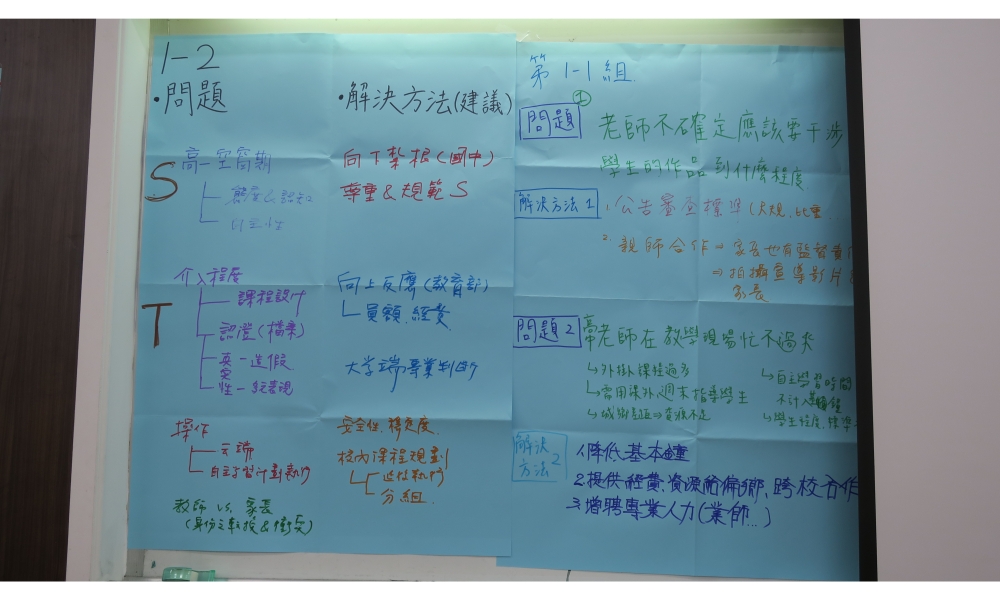 1-2
·問題
·解決方法(建議)
S
高一空窗期
態度&認知
自主性
向下紮根(國中)
尊重&規範S
T
介入程度
課程設計
認證(檔案)
真實性
造假
向上反應(教育部)
員額、經費
大學端專業判斷
操作
雲端
自主學習計劃執行
安全性、穩定度
校內課程規劃
分組
教師 vs. 家長
(身份之轉換&衝突)
第1-1組
①
問題
老師不確定應該要干涉
學生的作品到什麼程度
解決方法1
1.公告審查標準(尺規、比重
2.親師合作⇒家長也有監督責
⇒拍攝宣導影片
家長
問題2
老師在教學現場忙不過來
↳外掛課程過多
↳需用課外、週末指導學生
↳城鄉差距⇒資源不足
↳自主學習時間
不計入鐘
↳學生程度、標準
解決方法2
1.降低基本鐘
2.提供經費、資源給偏鄉、跨校合作
3.增聘專業人力(業師...)